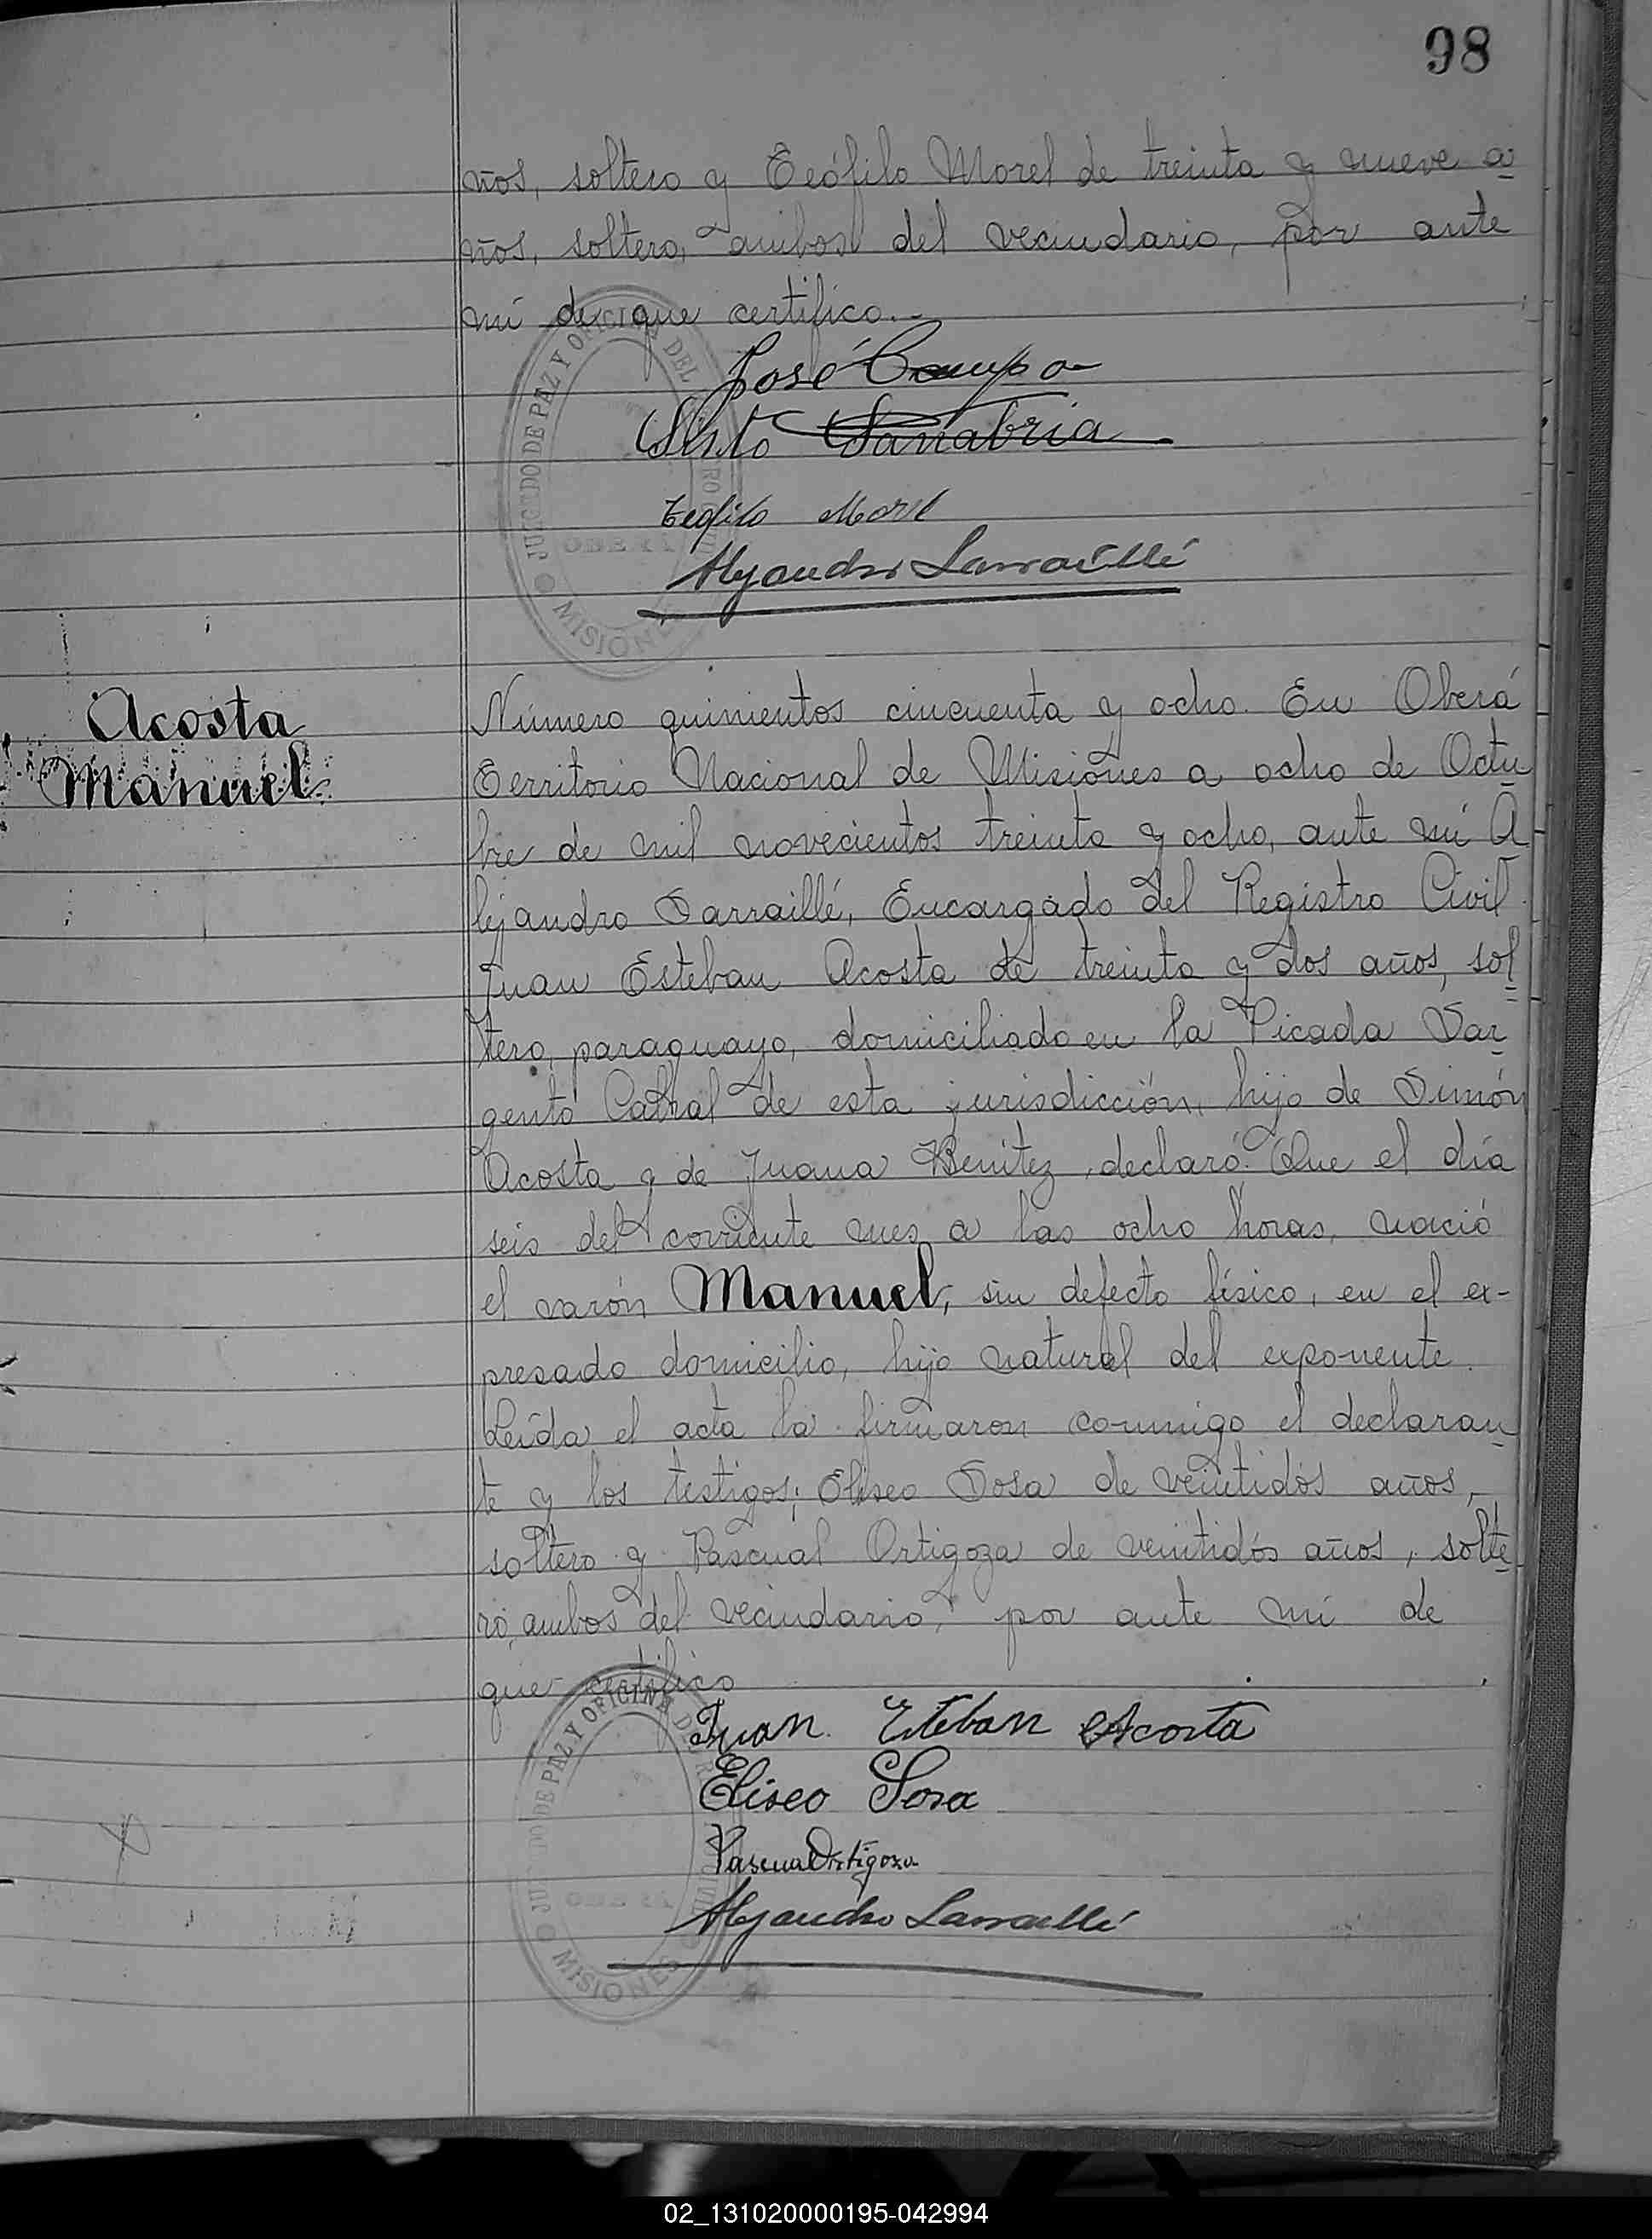 98
ños, soltero y Teófilo Morel de treinta y nueve a
ños, soltero, ambos del vecindario, por ante
mí de que certifico.-
José Campo
Sisto Sanabria
Teofilo Morel
Alejandro Larraillé
JUZGADO DE PAZ Y OFICINA DEL REGISTRO CIVIL
OBERÁ
MISIONES
Acosta
Manuel
Número quinientos cincuenta y ocho. En Oberá
Territorio Nacional de Misiones a ocho de Octu
bre de mil novecientos treinta y ocho, ante mí A
lejandro Sarraillé, Encargado del Registro Civil
Juan Esteban Acosta de treinta y dos años, sol
tero, paraguayo, domiciliado en la Picada Sar
gento Cabral de esta jurisdicción, hijo de Simón
Acosta y de Juana Benitez, declaró: Que el día
seis del corriente mes a las ocho horas, nació
el varón Manuel, sin defecto físico, en el ex-
presado domicilio, hijo natural del exponente.
Leída el acta la firmaron conmigo el declaran
te y los testigos; Eliseo Sosa de veintidós años,
soltero y Pascual Ortigoza de veintidós años, solte
ro, ambos del vecindario, por ante mí de
que certifico
Juan Esteban Acosta
Eliseo Sosa
Pascual Ortigoza
Alejandro Larraillé
JUZGADO DE PAZ Y OFICINA DEL REGISTRO CIVIL
OBERÁ
MISIONES
02_131020000195-042994